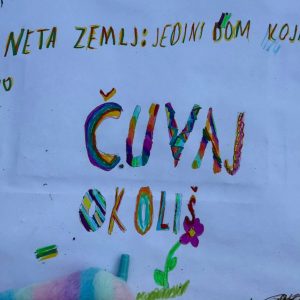 NETA ZEMLJ: JEDINI DOM KOJI
ČUVAJ
OKOLIŠ